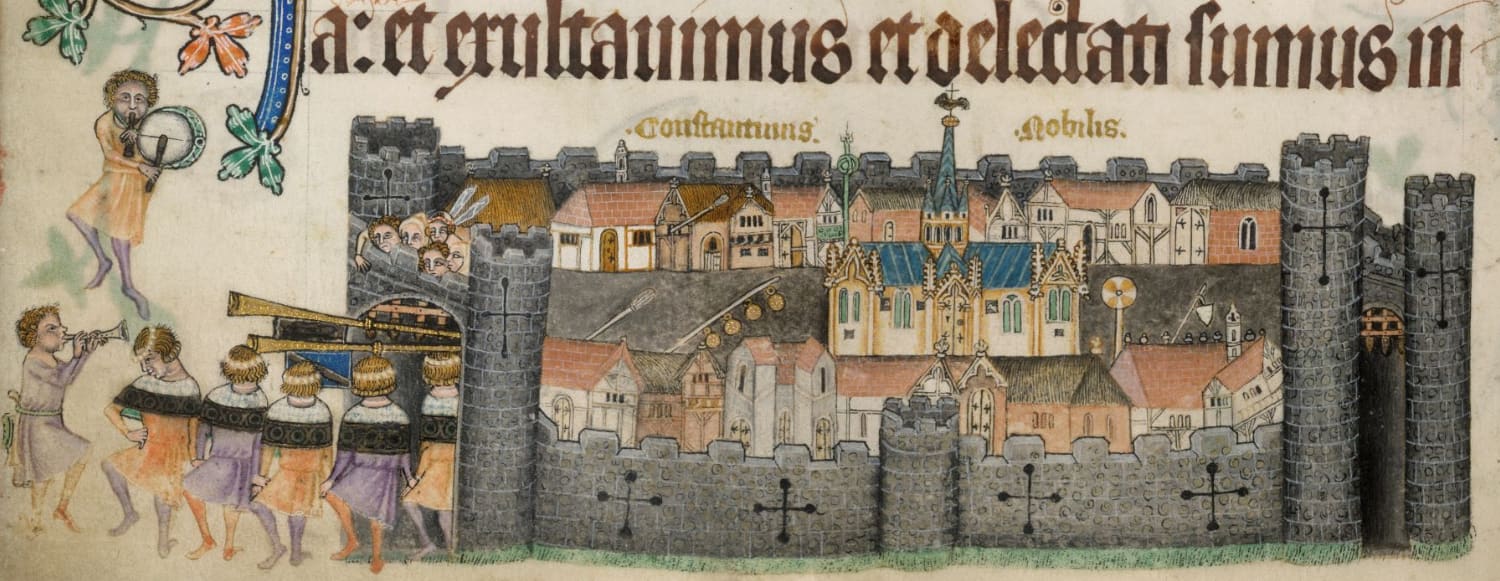 a: et exultauimus et delectati sumus in
.Constantinus. .Nobilis.